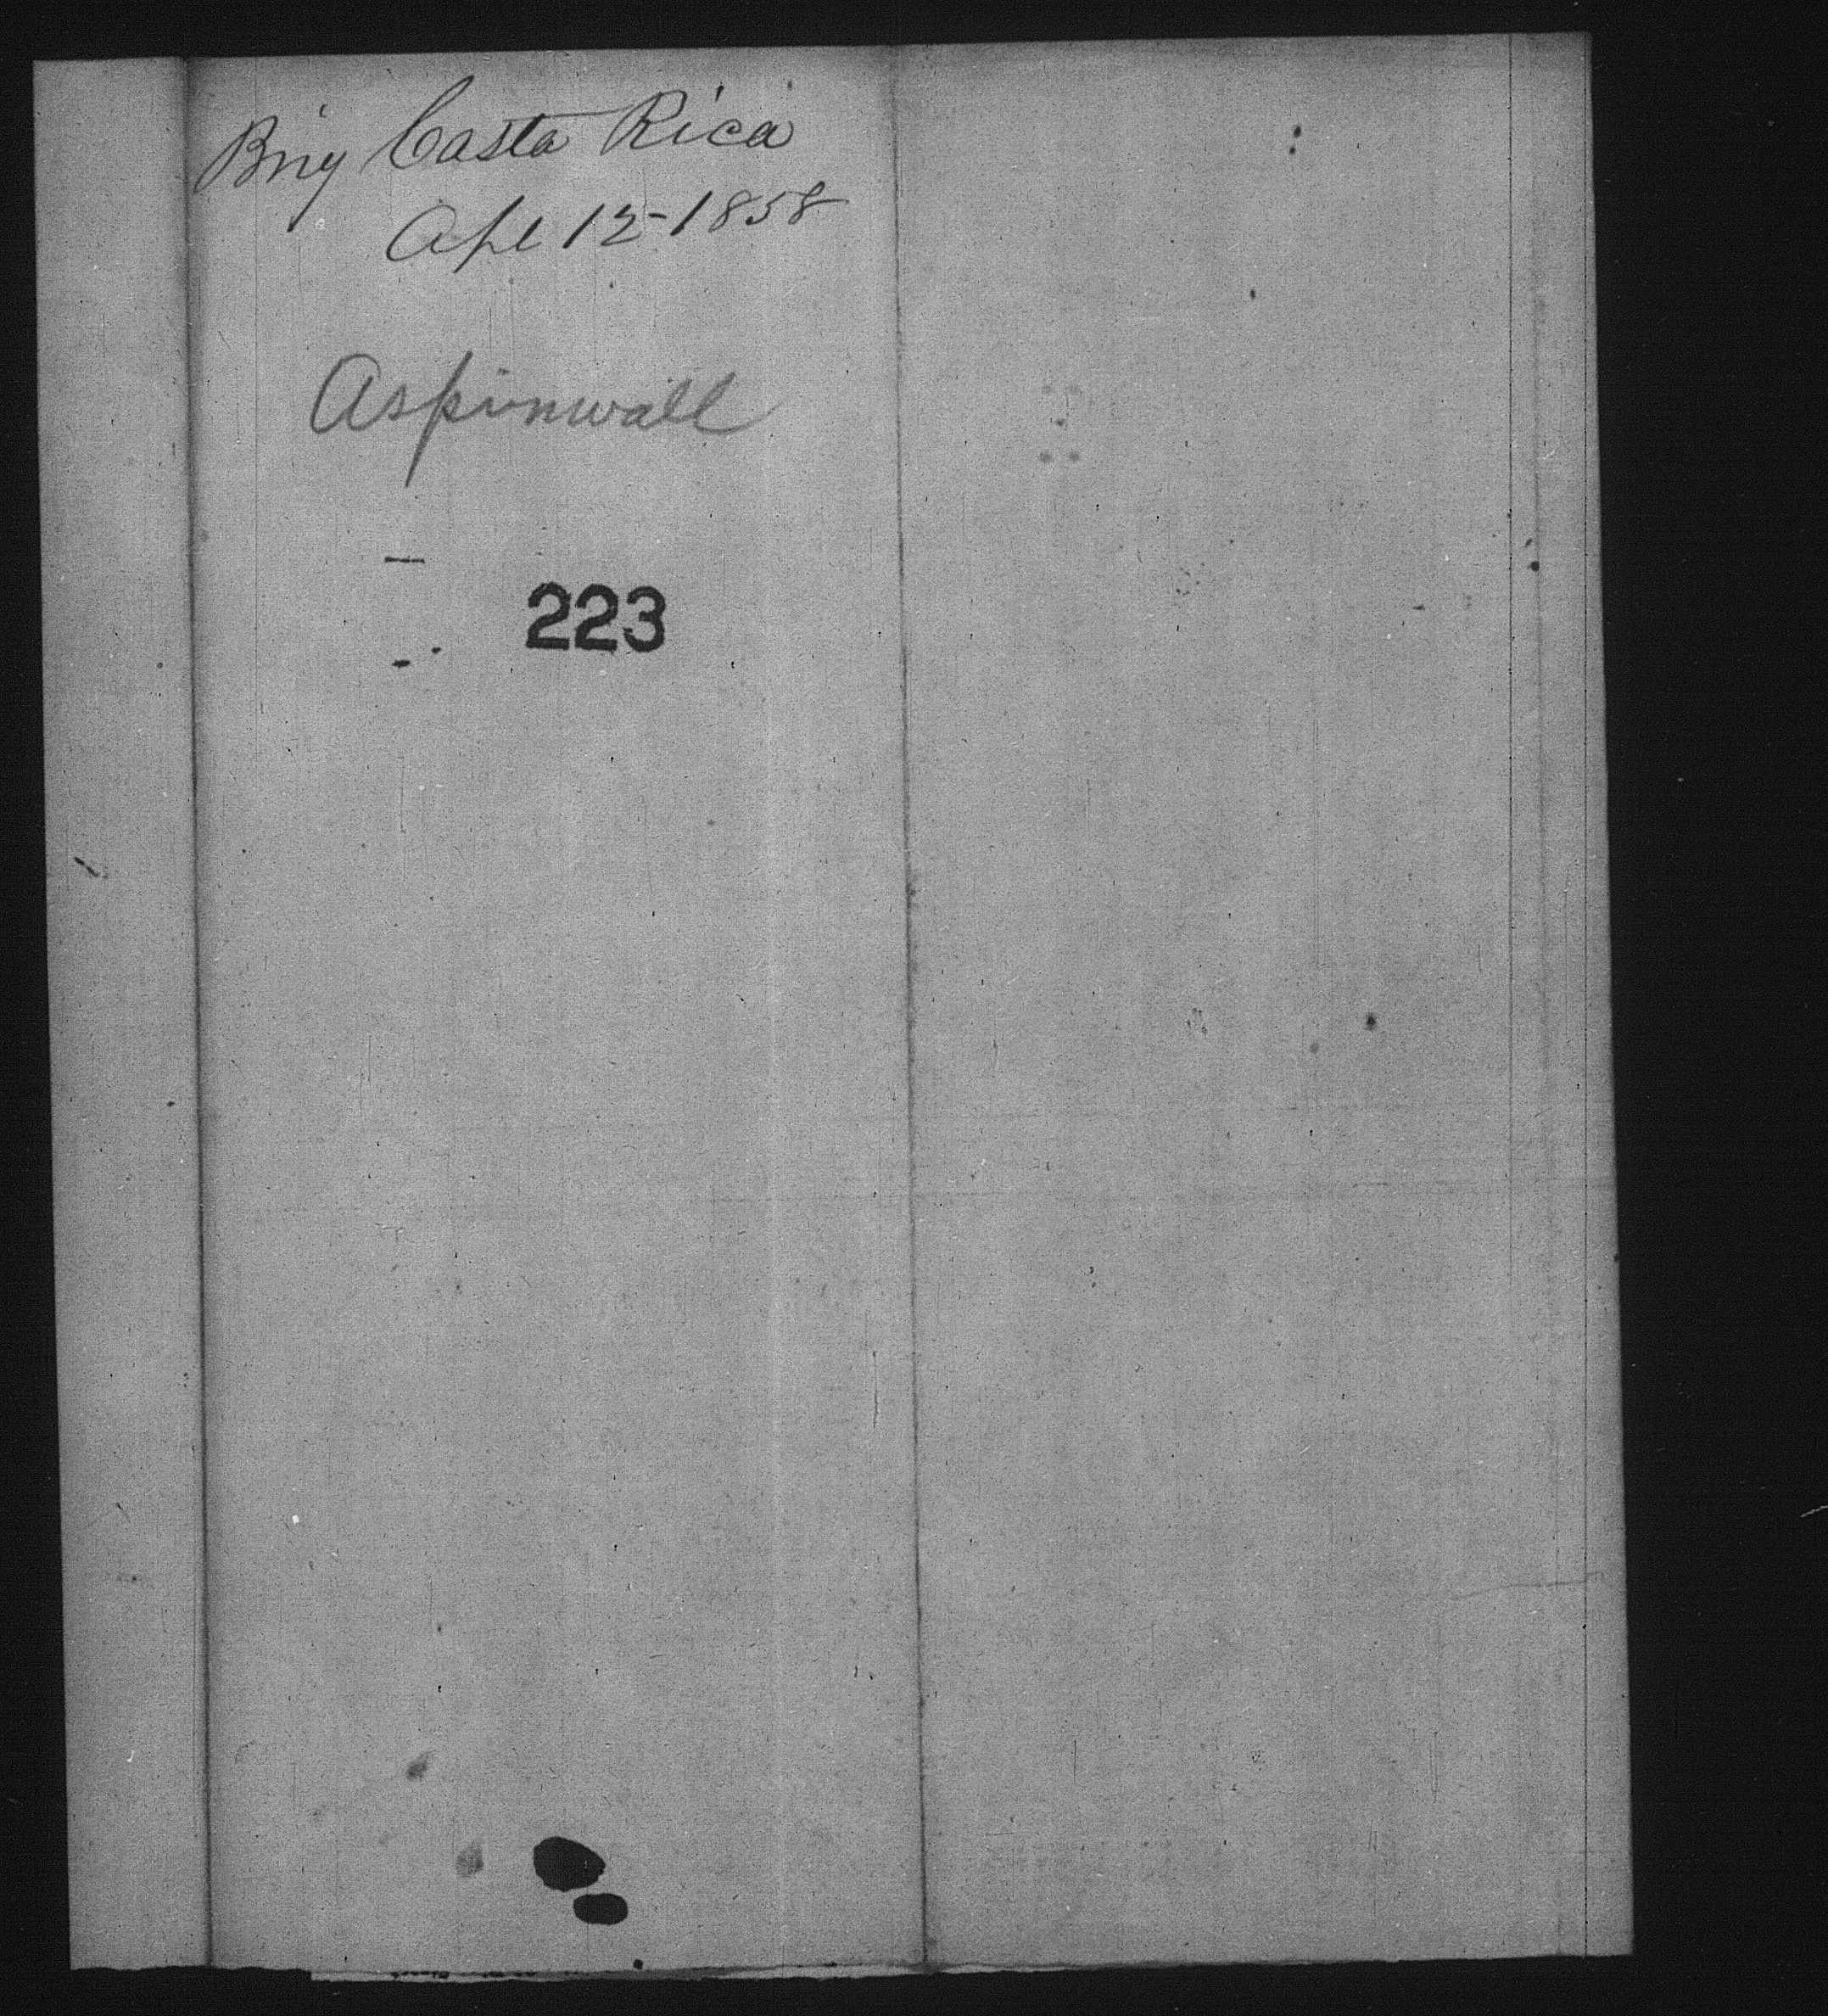 Brig Costa Rica
Apl 12-1858
Aspinwall
223